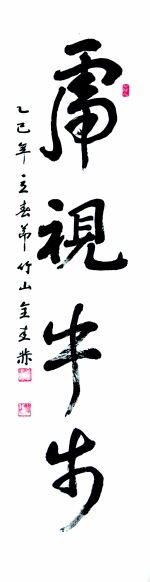 虎視牛步
乙巳年立春節竹山金